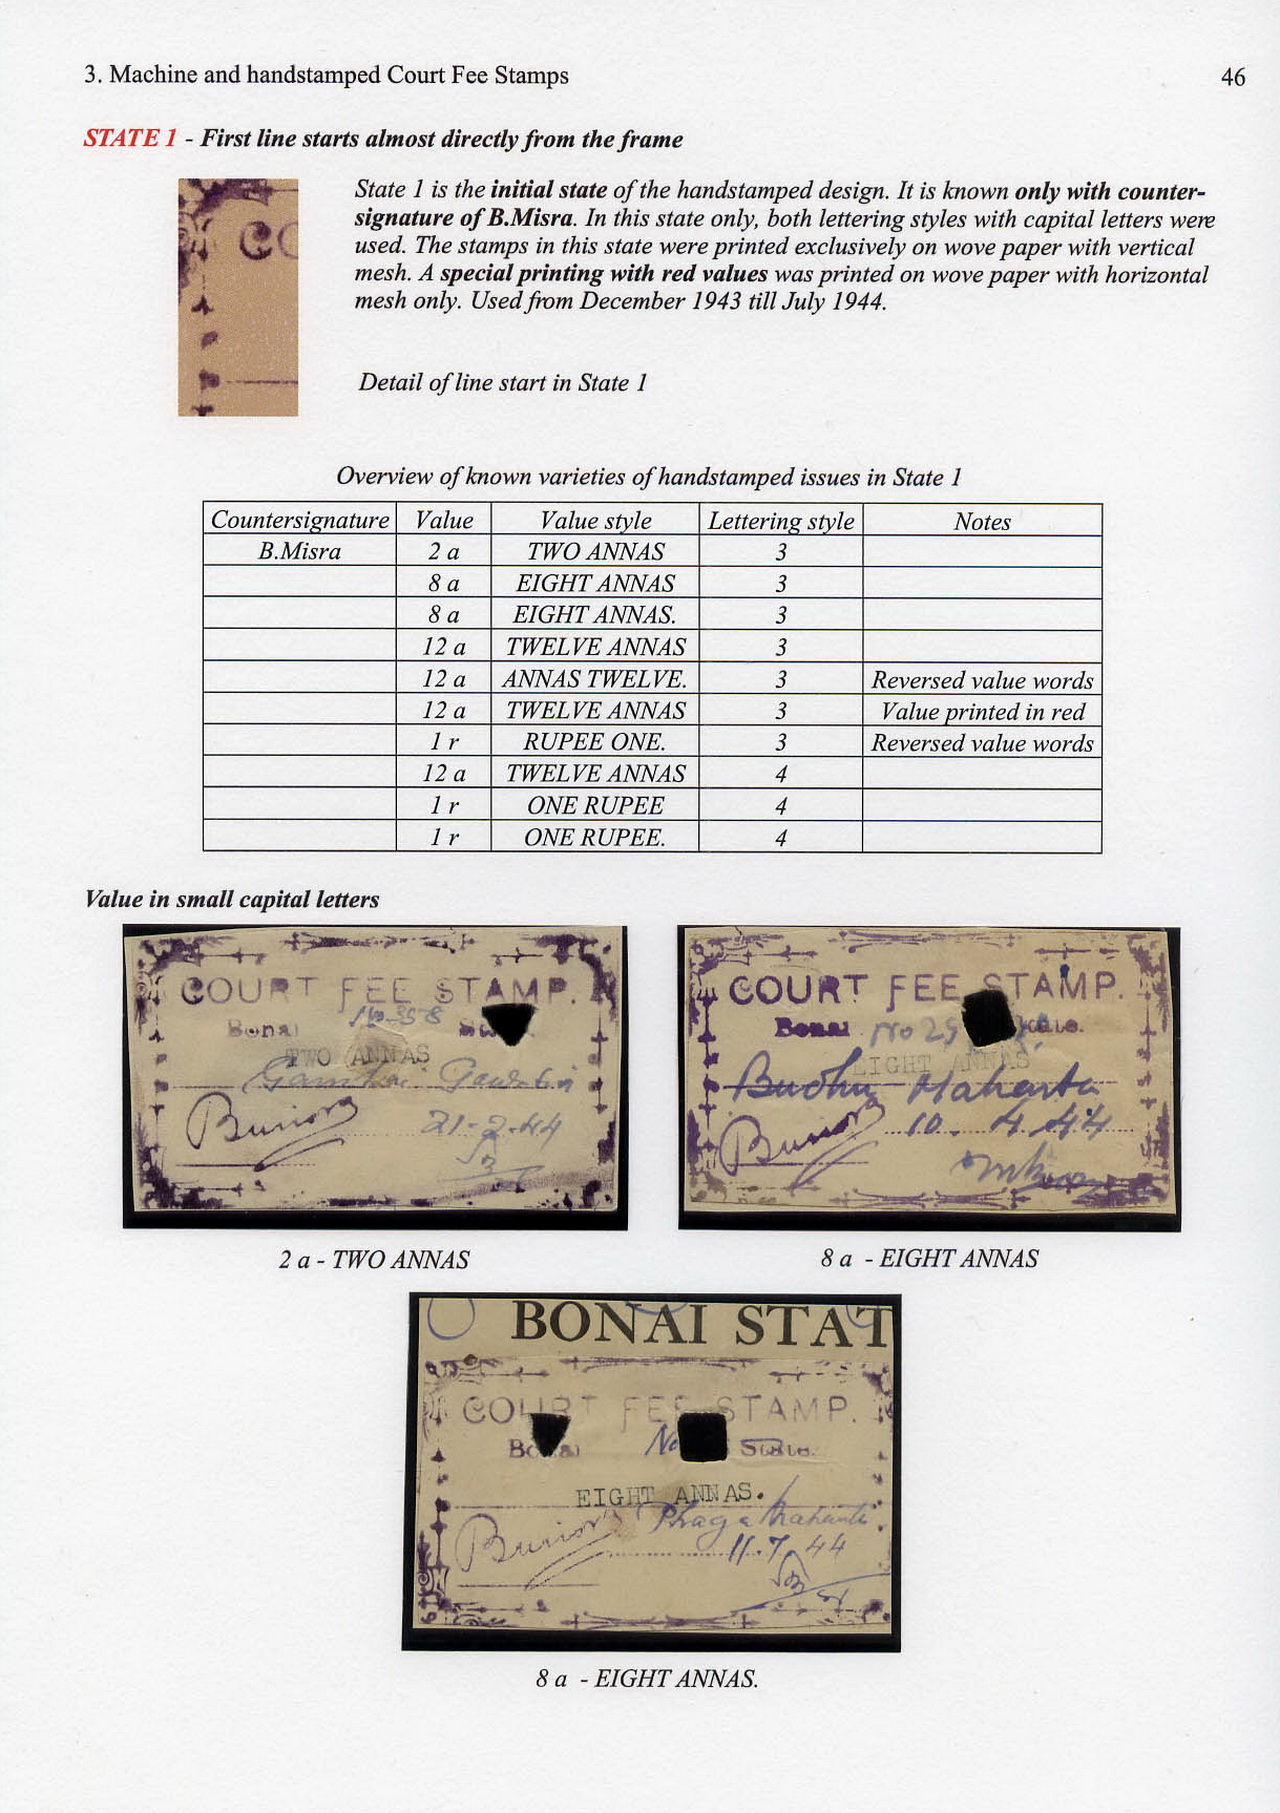 3. Machine and handstamped Court Fee Stamps 46
STATE 1 - First line starts almost directly from the frame
State 1 is the initial state of the handstamped design. It is known only with counter-
signature of B.Misra. In this state only, both lettering styles with capital letters were
used. The stamps in this state were printed exclusively on wove paper with vertical
mesh. A special printing with red values was printed on wove paper with horizontal
mesh only. Used from December 1943 till July 1944.
Detail of line start in State 1
Overview of known varieties of handstamped issues in State 1
Countersignature Value Value style Lettering style Notes
B.Misra 2 a TWO ANNAS 3
8 a EIGHT ANNAS 3
8 a EIGHT ANNAS. 3
12 a TWELVE ANNAS 3
12 a ANNAS TWELVE. 3 Reversed value words
12 a TWELVE ANNAS 3 Value printed in red
1 r RUPEE ONE. 3 Reversed value words
12 a TWELVE ANNAS 4
1 r ONE RUPEE 4
1 r ONE RUPEE. 4
Value in small capital letters
COURT FEE STAMP.
Bonai
TWO ANNAS
21-2-44
2 a - TWO ANNAS
COURT FEE STAMP.
Bonai No 29
EIGHT ANNAS
Budhu Mahanta
10. 4.44
8 a - EIGHT ANNAS
BONAI STAT
COURT FEE STAMP.
Bonai No State.
EIGHT ANNAS.
11.7.44
8 a - EIGHT ANNAS.